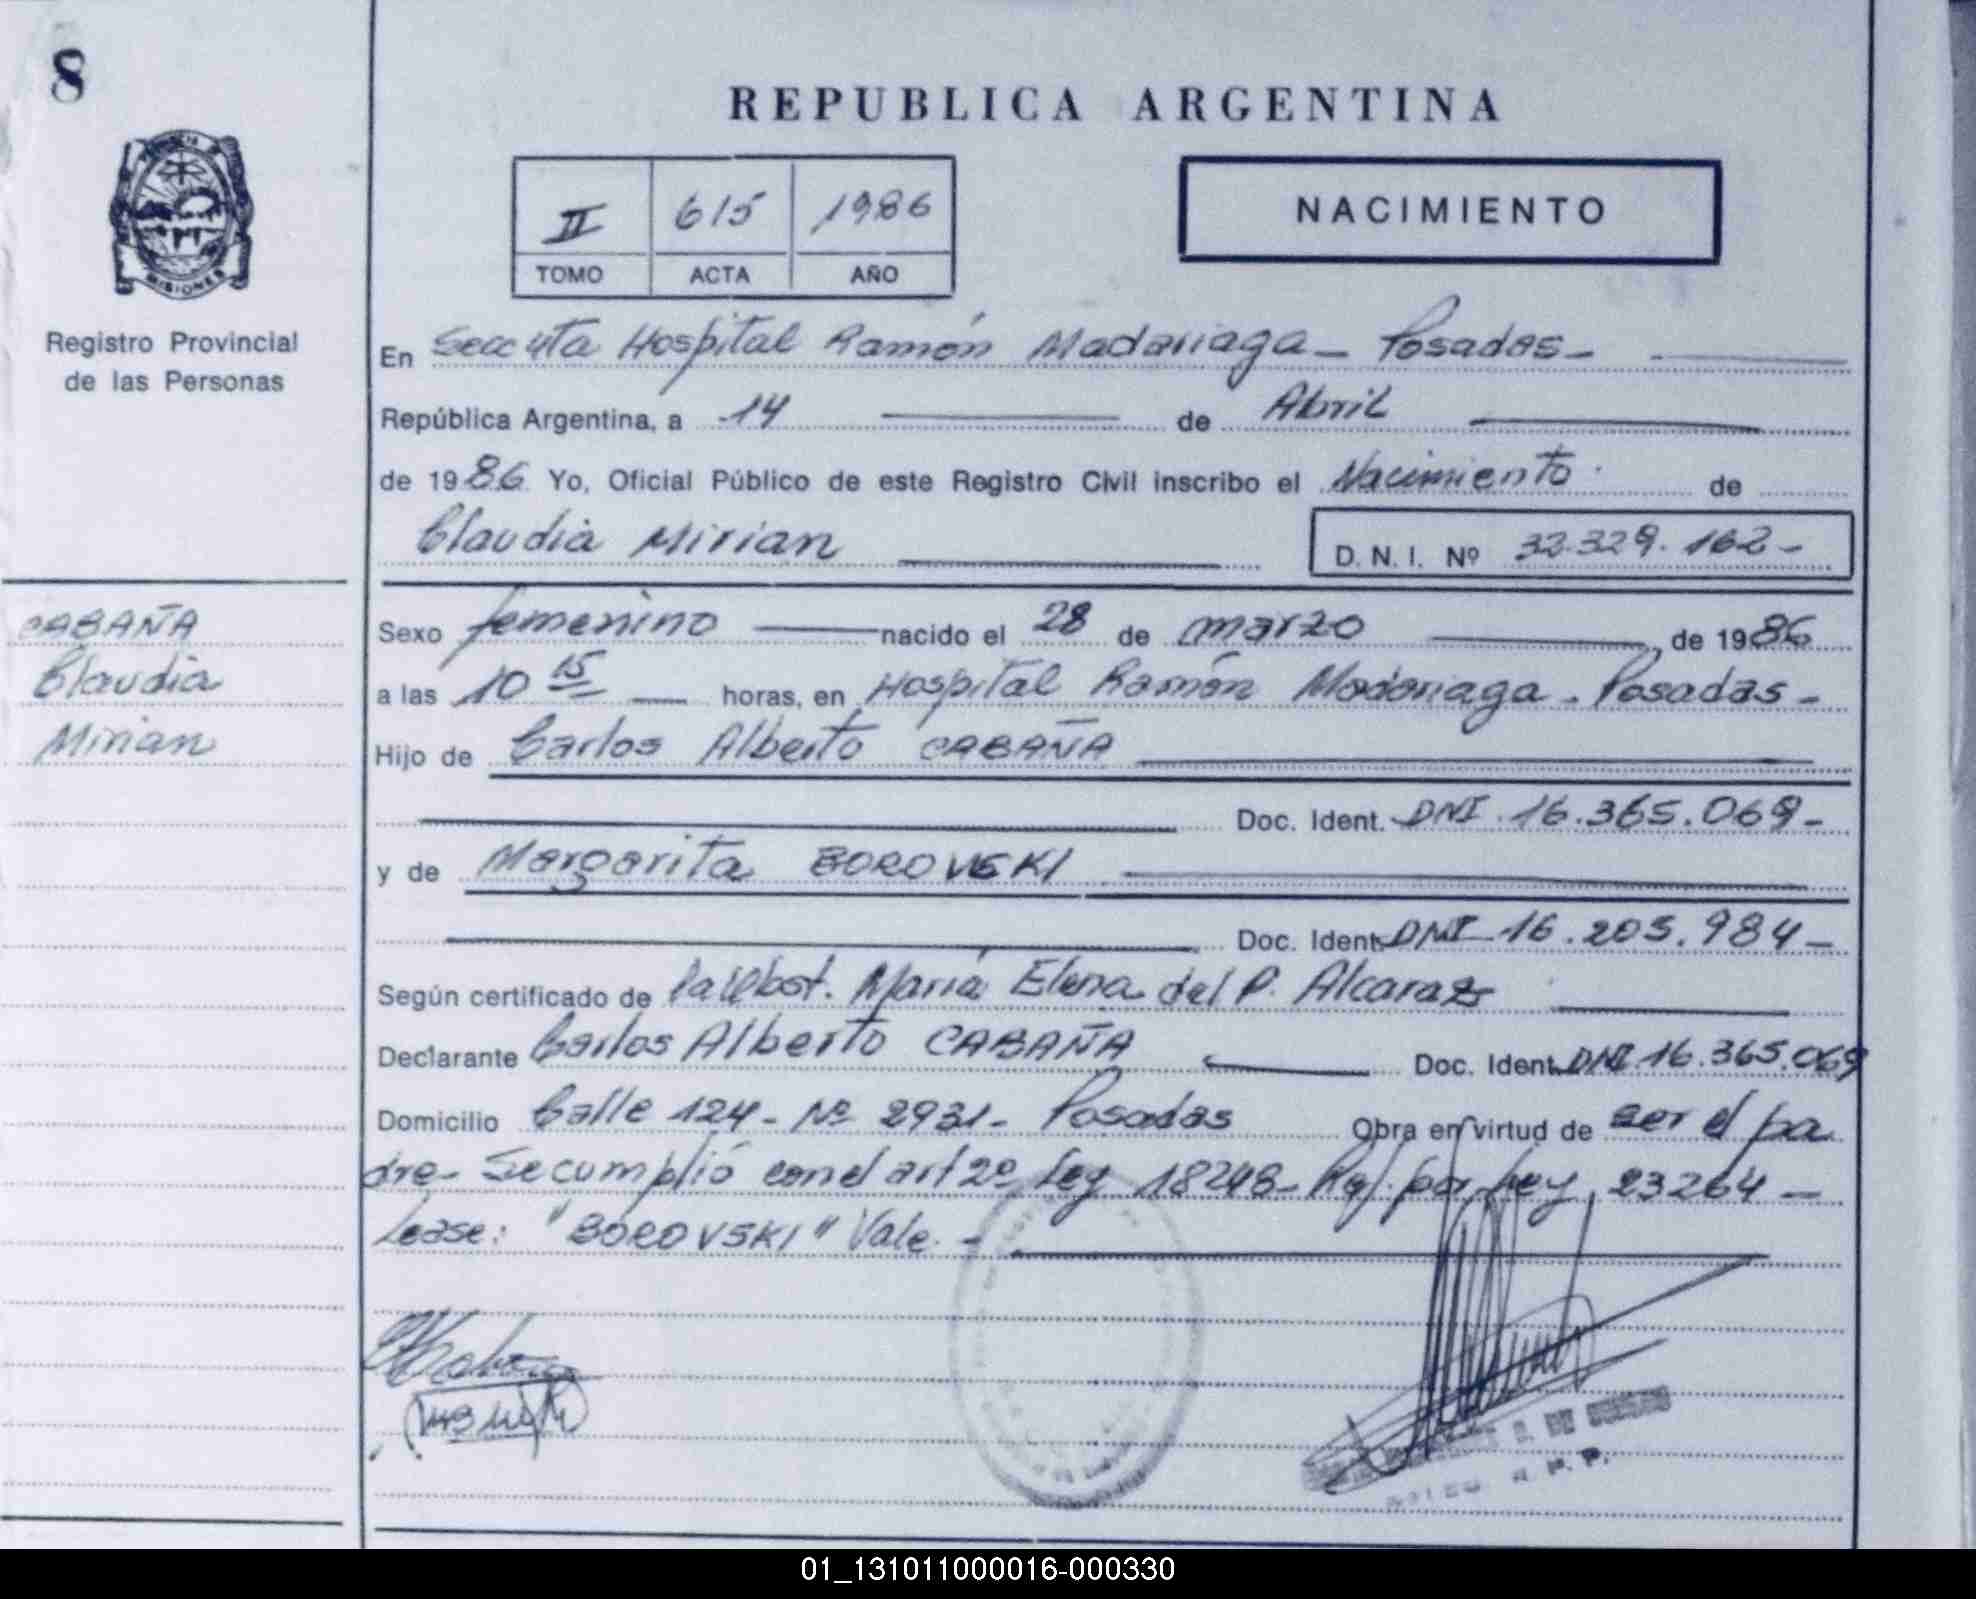 8
REPUBLICA ARGENTINA
II 615 1986
TOMO ACTA AÑO
NACIMIENTO
MISIONES
Registro Provincial
de las Personas
En Secc 4ta Hospital Ramón Madariaga - Posadas -
República Argentina, a 14 de Abril
de 1986 Yo, Oficial Público de este Registro Civil inscribo el Nacimiento de
Claudia Mirian D. N. I. Nº 32.329.162 -
CABAÑA
Claudia
Mirian
Sexo femenino nacido el 28 de marzo, de 1986
a las 10 15 horas, en Hospital Ramón Madariaga - Posadas -
Hijo de Carlos Alberto CABAÑA
Doc. Ident. DNI 16.365.069 -
y de Margarita BOROVSKI
Doc. Ident. DNI 16.203.984 -
Según certificado de María Elena del P. Alcaraz
Declarante Carlos Alberto CABAÑA Doc. Ident. DNI 16.365.069
Domicilio Calle 124 - Nº 2931 - Posadas Obra en virtud de ser el pa
dre - Se cumplió con el art 2º Ley 18248 - por Ley 23264 -
Lease: "BOROVSKI" Vale. -
01_131011000016-000330